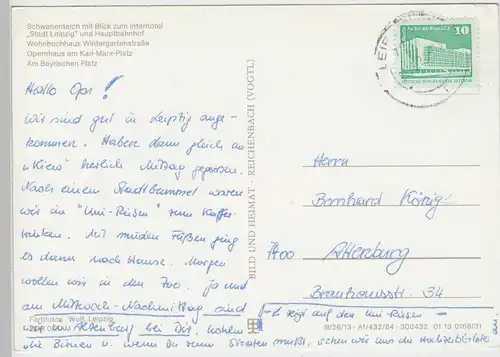 Schwanenteich mit Blick zum Interhotel
„Stadt Leipzig" und Hauptbahnhof
Wohnhochhaus Wintergartenstraße
Opernhaus am Karl-Marx-Platz
Am Bayrischen Platz
Hallo Opa!
Wir sind gut in Leipzig ange-
kommen. Haben dann gleich am
„Kiew" herrlich Mittag gegessen.
Nach einem Stadtbummel waren
wir im "Uni-Riesen" zum Kaffee-
trinken. Mit müden Füßen ging
es dann nach Hause. Morgen
wollen wir in den Zoo. Ja und
am Mittwoch-Nachmittag sind
wir in Altenburg bei Dir, holen
die Birnen u. wenn Du
Farbfotos: Wolf, Leipzig
BILD UND HEIMAT · REICHENBACH (VOGTL)
LEIPZIG
10
DEUTSCHE DEMOKRATISCHE REPUBLIK
Herrn
Bernhard König
7400 Altenburg
Brauhausstr. 34
zeigt auf den Uni-Riesen
III/26/13 · A1/432/84 · 300432 01 13 0168/31